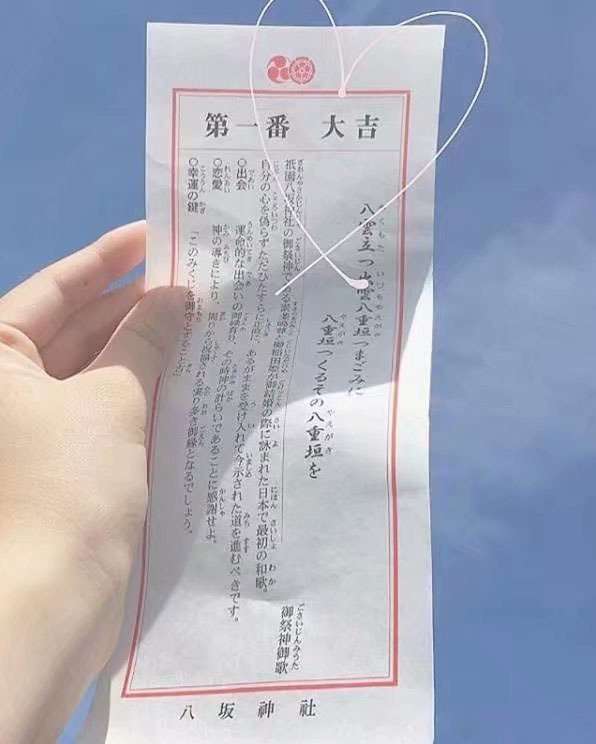 第一番 大吉
八雲立つ出雲八重垣つまごみに
八重垣つくるその八重垣を
御祭神御歌
祇園八坂神社の御祭神である が御結婚の際に詠まれた日本で最初の和歌。
自分の心を偽らずただひたすらに正直に、あるが を受け入れて今示された道を進むべきです。
○出会 運命的な出会いの御縁有り、その時神の計らいであることに感謝せよ。
○恋愛 神の導きにより、周りから祝福される実り多き御縁となるでしょう。
○幸運の鍵 「このみくじを御守とすること」
八坂神社